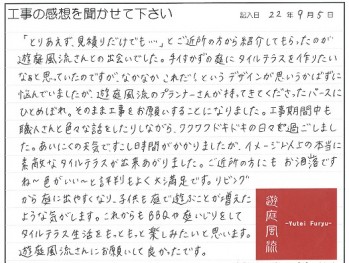 工事の感想を聞かせて下さい
記入日 22年9月5日
「とりあえず、見積りだけでも…」とご近所の方から紹介してもらったのが
遊庭風流さんとの出会いでした。手付かずの庭にタイルテラスを作りたい
なぁと思っていたのですが、なかなか これだ!という デザインが思いうかばずに
悩んでいましたが、遊庭風流のプランナーさんが持ってきてくださったパースに
ひとめぼれ。そのまま工事をお願いすることになりました。工事期間中も
職人さんと色々な話をしたりしながら、ワクワクドキドキの日々を過ごしまし
た。あいにくの天気ですこし時間がかかりましたが、イメージ以上の本当に
素敵なタイルテラスが出来あがりました。ご近所の方にも お洒落です
ね〜色がいい〜と評判もよく大満足です。リビング
から庭に出やすくなり、子供も庭で遊ぶことが増えた
ような気がします。これからもBBQや庭いじりをして
タイルテラス生活をもっともっと楽しみたいと思います。
遊庭風流さんにお願いして良かったです。
遊庭風流
-Yutei Furyu-